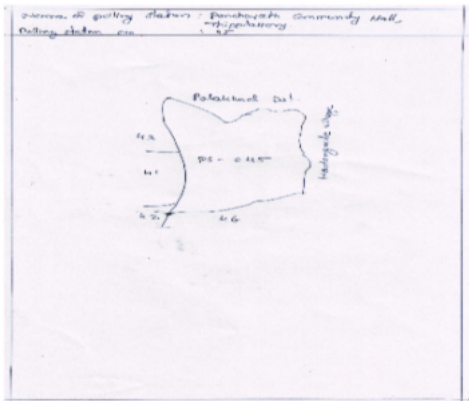 Name of polling station : Panchayath Community Hall,
Polling station no. : 45
Palakkad Dist.
43
41
PS - 045
42
46